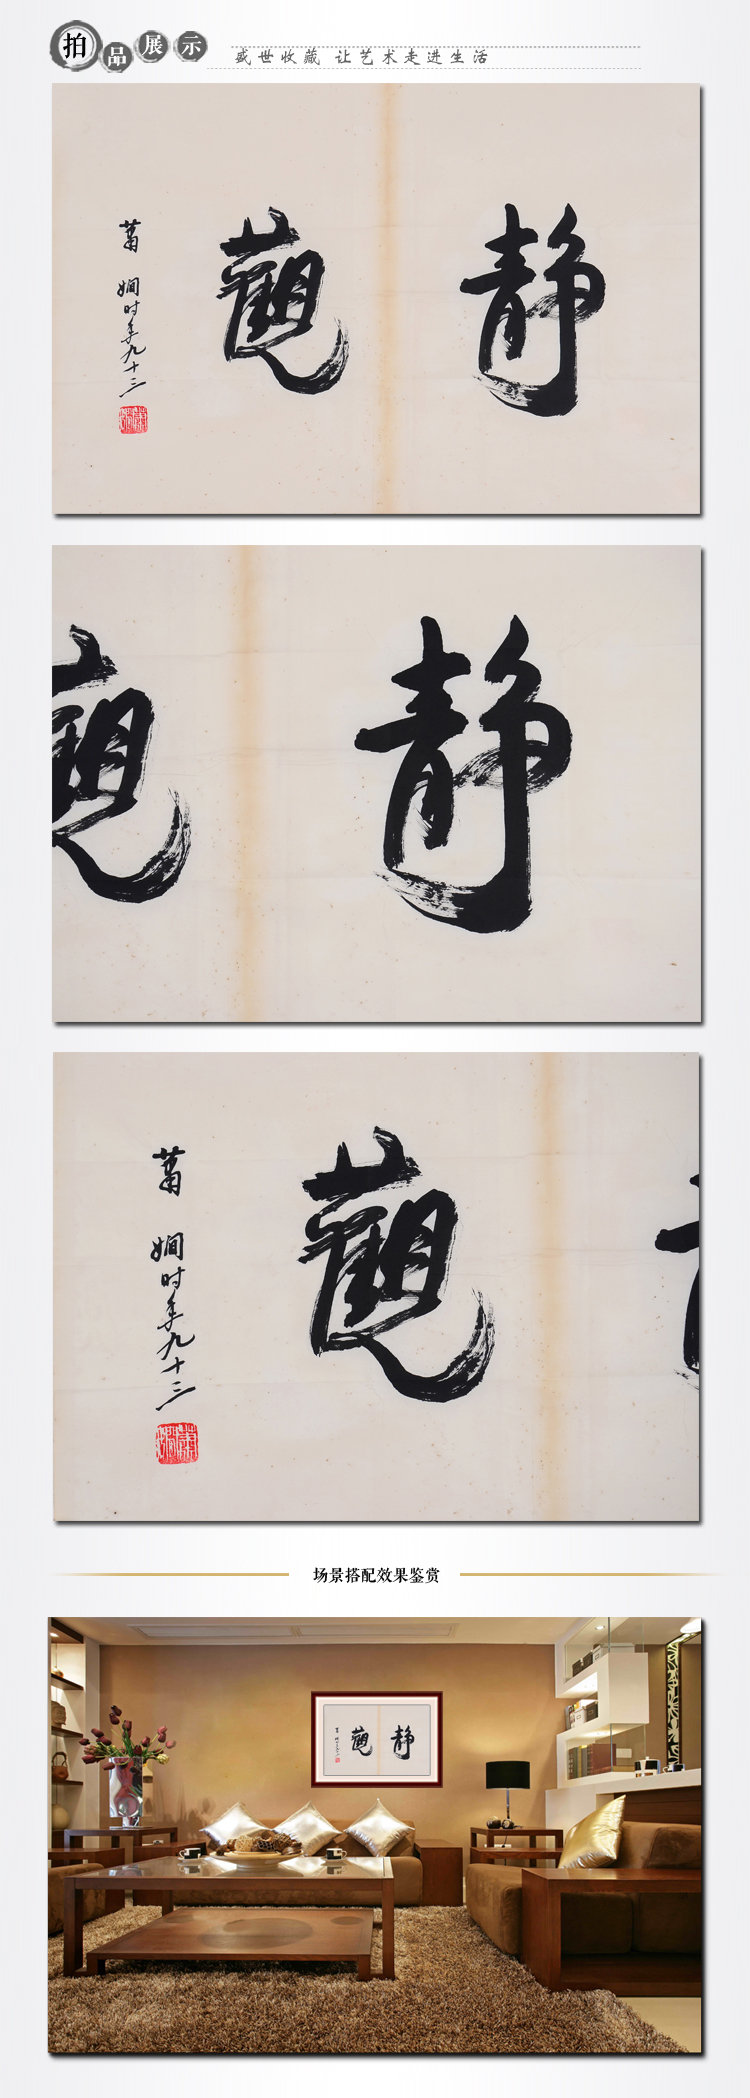 拍品展示
盛世收藏 让艺术走进生活
静觀
萧嫻时年九十三
静
觀
萧嫻时年九十三
场景搭配效果鉴赏
静觀